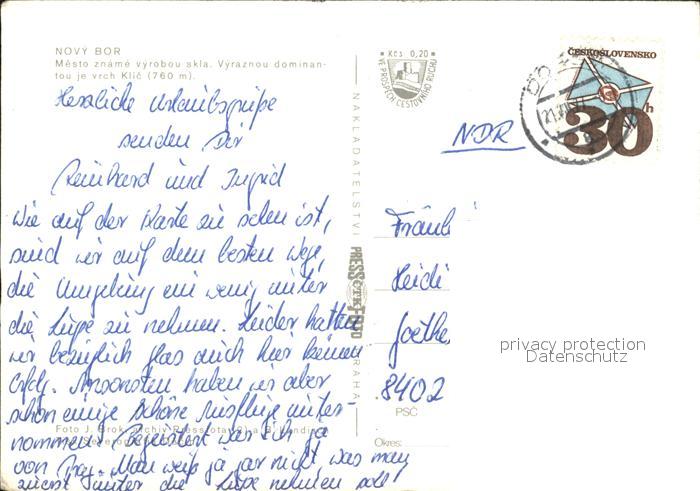 NOVÝ BOR
Město známé výrobou skla. Výraznou dominan-
tou je vrch Klíč (760 m).
Herzliche Urlaubsgrüße
senden Dir
Reinhard und Ingrid
Wie auf der Karte zu sehen ist,
sind wir auf dem besten Wege,
die Umgebung ein wenig unter
die Lupe zu nehmen. Leider hatten
wir bezüglich Glas auch hier keinen
Erfolg. Ansonsten haben wir aber
schon einige schöne Ausflüge unter-
nommen. Begeistert war ich ja
von Prag. Man weiß ja gar nicht, was man
zuerst unter die Lupe nehmen soll
Foto J. Brok, archiv Pressfota (2) a
NAKLADATELSTVÍ
PRESSFOTO
ČTK
PRAHA
Kčs 0,20
VE PROSPĚCH CESTOVNÍHO RUCHU
ČESKOSLOVENSKO
30 h
NDR
Fräul
Heidi
Goethe
8402
PSČ
Okres:
privacy protection
Datenschutz